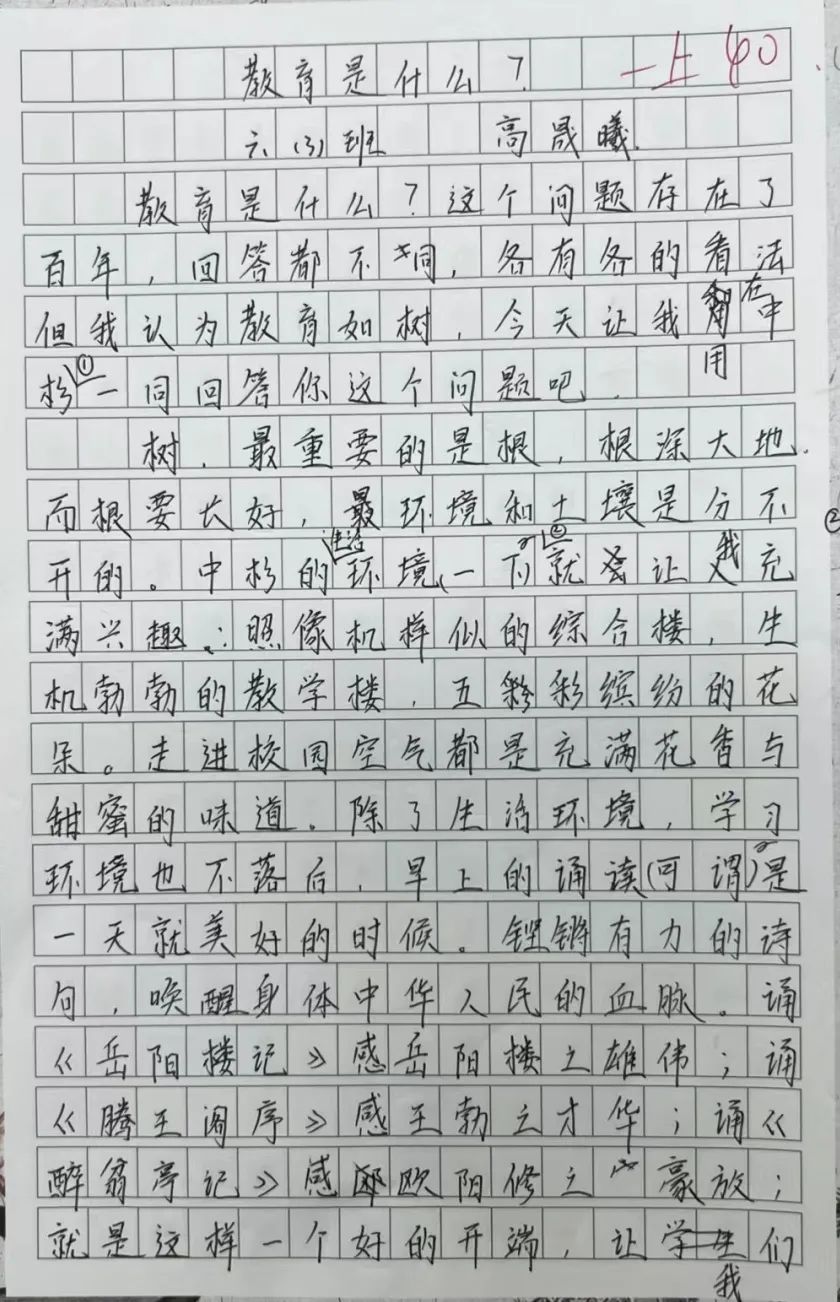 教育是什么？ 一上 40
六(3)班 高晟曦
教育是什么？这个问题存在了
百年，回答都不同，各有各的看法
但我认为教育如树，今天让我用在中
杉①一同回答你这个问题吧.
树，最重要的是根，根深大地.
而根要长好，最环境和土壤是分不 ②
开的。中杉的生活环境(一下)②就会让我充
满兴趣：照像机样似的综合楼，生
机勃勃的教学楼，五彩缤纷的花
朵。走进校园空气都是充满花香与
甜蜜的味道。除了生活环境，学习
环境也不落后，早上的诵读(可谓)是
一天就美好的时候。铿锵有力的诗
句，唤醒身体中华人民的血脉。诵
《岳阳楼记》感岳阳楼之雄伟；诵
《腾王阁序》感王勃之才华；诵《
醉翁亭记》感欧阳修之豪放；
就是这样一个好的开端，让我们